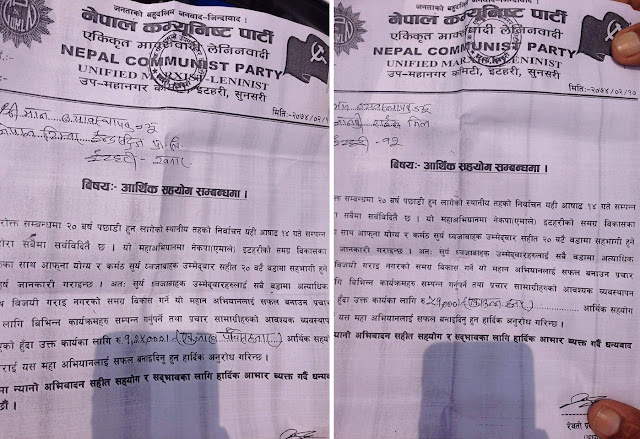 जनताको बहुदलिय जनवाद-जिन्दावाद !
नेपाल कम्युनिष्ट पार्टी
एकिकृत मार्क्सवादी लेनिनवादी
NEPAL COMMUNIST PARTY
UNIFIED MARXIST-LENINIST
उप-महानगर कमिटी, इटहरी, सुनसरी
मिति:-२०७४/०२/१
श्री मान
प्रा. लि.
इटहरी -
बिषयः- आर्थिक सहयोग सम्बन्धमा ।
रोक्त सम्बन्धमा २० बर्ष पछाडी हुन लागेको स्थानीय तहको निर्वाचन यही आषाढ १४ गते सम्पन्न
ोरा सबैमा सर्वविदितै छ । यो महाअभियानमा नेकपा(एमाले) इटहरीको समग्र विकासका
का साथ आफ्ना योग्य र कर्मठ सुर्य ध्वजाबाहक उम्मेद्बार सहीत २० वटै वडामा सहभागी हुने
र्ष जानकारी गराइन्छ । अतः सुर्य ध्वजाबाहक उम्मेद्बारहरुलाई सबै वडामा अत्याधिक
थ विजयी गराइ नगरको विकास गर्ने यो महान अभियानलाई सफल बनाउन प्रचार
लागि बिभिन्न कार्यक्रमहरु सम्पन्न गर्नुपर्ने तथा प्रचार सामाग्रीहरुको आवश्यक व्यवस्थापन
एको हुँदा उक्त कार्यका लागि रु १,२५,०००।- आर्थिक सहयो
राई यस महा अभियानलाई सफल बनाइदिनु हुन हार्दिक अनुरोध गरिन्छ ।
मा न्यानो अभिवादन सहीत सहयोग र सद्भावका लागि हार्दिक आभार ब्यक्त गर्दै धन्यवाद
छौं ।
जनताको बहुदलिय जनवाद-जिन्दावाद !
नेपाल कम्युनिष्ट पार्टी
एकिकृत मार्क्सवादी लेनिनवादी
NEPAL COMMUNIST PARTY
UNIFIED MARXIST-LENINIST
उप-महानगर कमिटी, इटहरी, सुनसरी
मिति:-२०७४/०२/१०
मिल
इटहरी - १२
बिषयः- आर्थिक सहयोग सम्बन्धमा ।
क्त सम्बन्धमा २० बर्ष पछाडी हुन लागेको स्थानीय तहको निर्वाचन यही आषाढ १४ गते सम्पन्न
ा सबैमा सर्वविदितै छ । यो महाअभियानमा नेकपा(एमाले) इटहरीको समग्र विकासका
साथ आफ्ना योग्य र कर्मठ सुर्य ध्वजाबाहक उम्मेद्बार सहीत २० वटै वडामा सहभागी हुने
जानकारी गराइन्छ । अतः सुर्य ध्वजाबाहक उम्मेद्बारहरुलाई सबै वडामा अत्याधिक
विजयी गराइ नगरको समग्र विकास गर्ने यो महान अभियानलाई सफल बनाउन प्रचार
बिभिन्न कार्यक्रमहरु सम्पन्न गर्नुपर्ने तथा प्रचार सामाग्रीहरुको आवश्यक व्यवस्थापन
हुँदा उक्त कार्यका लागि रु ५१,०००।- आर्थिक सहयोग
यस महा अभियानलाई सफल बनाइदिनु हुन हार्दिक अनुरोध गरिन्छ ।
न्यानो अभिवादन सहीत सहयोग र सद्भावका लागि हार्दिक आभार ब्यक्त गर्दै धन्यवाद
रेवती